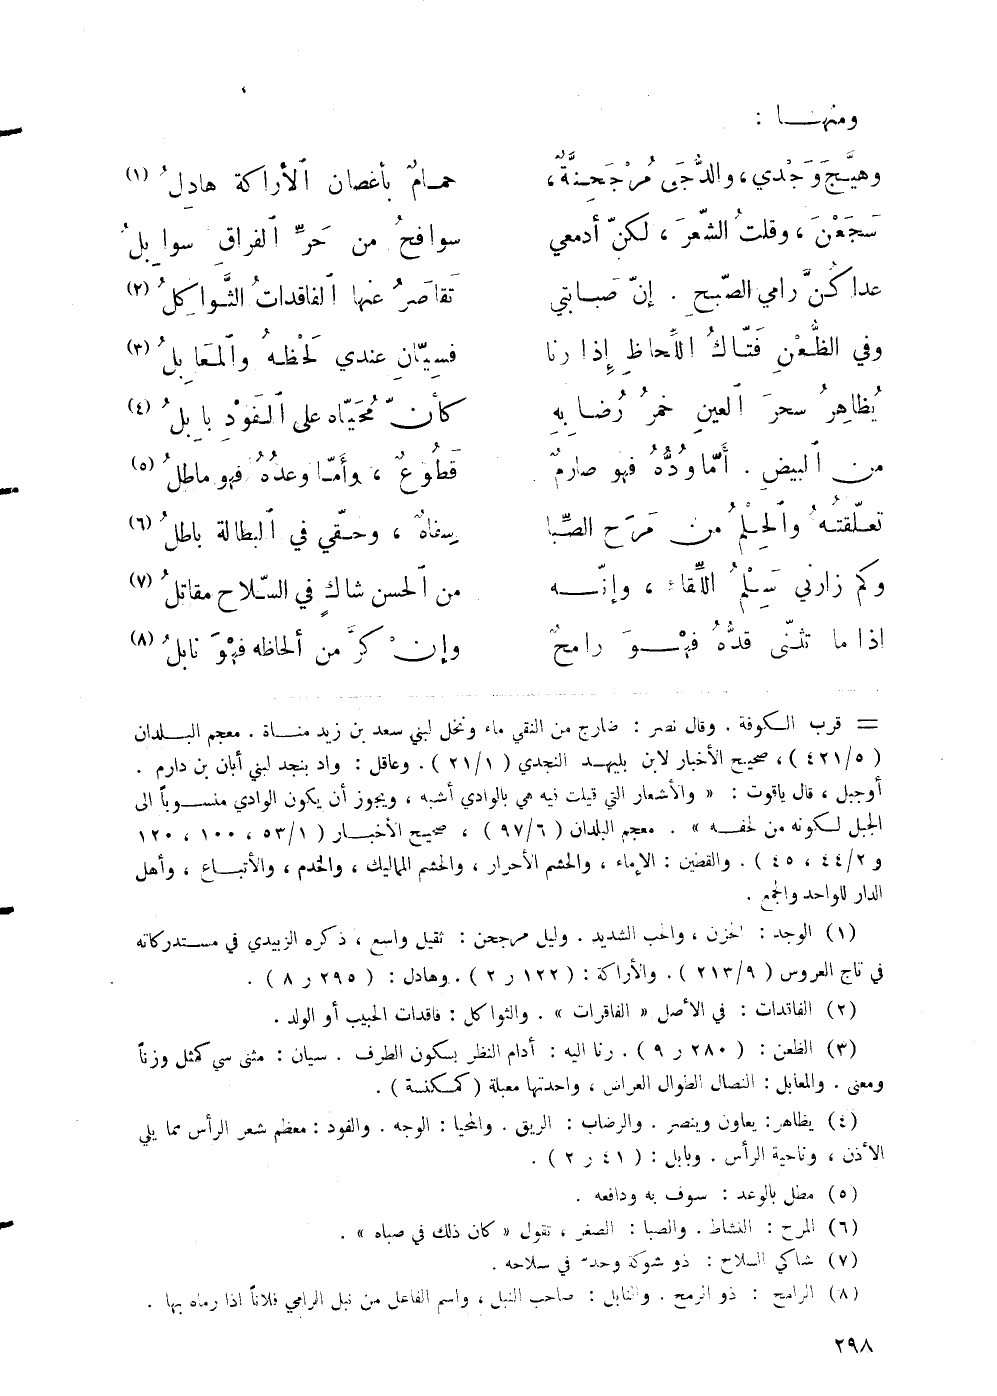 ومنهـــا :
وهيّجَ وَجْدي، والدُّجَى مُرْجَحِنَّةٌ، حمـامٌ بأغصان الأراكة هادِلُ (١)
سَجَعْنَ ، وقلتُ الشّعرَ ، لكنّ أدمعي سوافحُ من حَرِّ الفراقِ سوابِلُ
عداكُنَّ رامي الصّبحِ . إنّ صبابتي تَقاصَرُ عنها الفاقداتُ الثَّواكِلُ (٢)
وفي الظُّعْنِ فَتّاكُ اللِّحاظِ إذا رنا فسِيّانِ عندي لَحْظُهُ والمَعابِلُ (٣)
يُظاهِرُ سحرَ العينِ خمرُ رُضابِهِ كأنّ مُحَيّاه على الفَوْدِ بابِلُ (٤)
من البيضِ . أمّا وُدُّهُ فهو صارمٌ قَطُوعٌ ، وأَمّا وعدُهُ فهو ماطلُ (٥)
تعلّقتُهُ والحِلْمُ من مَرَحِ الصِّبا سِفاهٌ ، وحقّي في البطالة باطلُ (٦)
وكم زارني سَِلْمُ اللِّقاءِ ، وإنّـــه من الحسن شاكٍ في السّلاح مقاتلُ (٧)
اذا ما تثنّى قدُّهُ فهْــوَ رامحٌ وإنْ كرَّ من ألحاظه فهْوَ نابلُ (٨)
= قرب الكوفة . وقال نصر : ضارج من النقي ماء ونخل لبني سعد بن زيد منـاة . معجم البـلدان
( ٤٢١/٥ ) ، صحيح الأخبار لابن بليهـد النجدي ( ٢١/١ ) . وعاقل : واد بنجد لبني أبان بن دارم .
أوجبل ، قال ياقوت : « والأشعار التي قيلت فيه هي بالوادي أشبه ، ويجوز أن يكون الوادي منسـوباً الى
الجبل لكونه من لحفه » . معجم البلدان ( ٩٧/٦ ) ، صحيح الأخبـار ( ٥٣/١ ، ١٠٠ ، ١٢٠
و ٤٤/٢ ، ٤٥ ) . والقطين : الإماء ، والحشم الأحرار ، والحشم المماليك ، والخدم ، والأتبـاع ، وأهل
الدار للواحد والجمع .
(١) الوجد : الحزن ، والحب الشديد . وليل مرجحن : ثقيل واسع ، ذكره الزبيدي في مستدركاته
في تاج العروس ( ٢١٣/٩ ) . والأراكة : ( ١٢٢ ر ٢ ) . وهادل : ( ٢٩٥ ر ٨ ) .
(٢) الفاقدات : في الأصل « الفاقرات » . والثواكل : فاقدات الحبيب أو الولد .
(٣) الظعن : ( ٢٨٠ ر ٩ ) . رنا اليه : أدام النظر بسكون الطرف . سيان : مثنى سي كمثل وزناً
ومعنى . والمعابل : النصال الطوال العراض ، واحدتها معبلة ( كمكنسة ) .
(٤) يظاهر : يعاون وينصر . والرضاب : الريق . والمحيا : الوجه . والفود : معظم شعر الرأس مما يلي
الأذن ، وناحية الرأس . وبابل : ( ٤١ ر ٢ ) .
(٥) مطل بالوعد : سوف به ودافعه .
(٦) المرح : النشاط . والصبا : الصغر ، تقول « كان ذلك في صباه » .
(٧) شاكي السلاح : ذو شوكة وحدّ في سلاحه .
(٨) الرامح : ذو الرمح . والنابل : صاحب النبل ، واسم الفاعل من نبل الرامي فلاناً اذا رماه بها .
٢٩٨